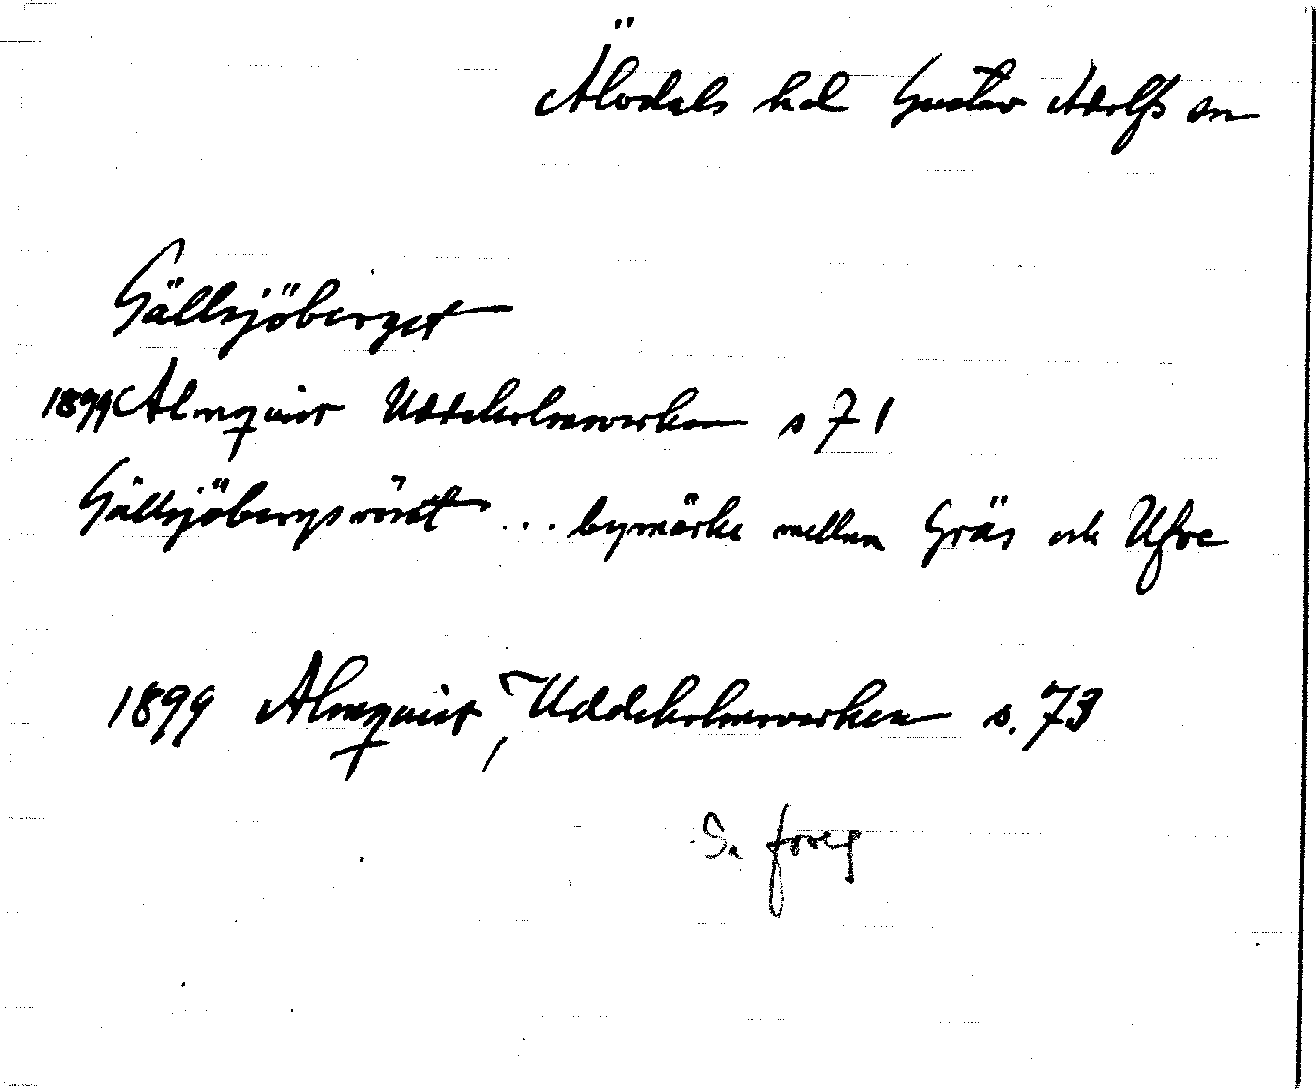 Älvdals hd Gustav Adolfs sn
Gällsjöberget
1899 Almquist Uddeholmsverken s 71
Gällsjöbergsröset ... bymärke mellan Gräs och Ufve
1899 Almquist, Uddeholmsverken s. 73
Se föreg